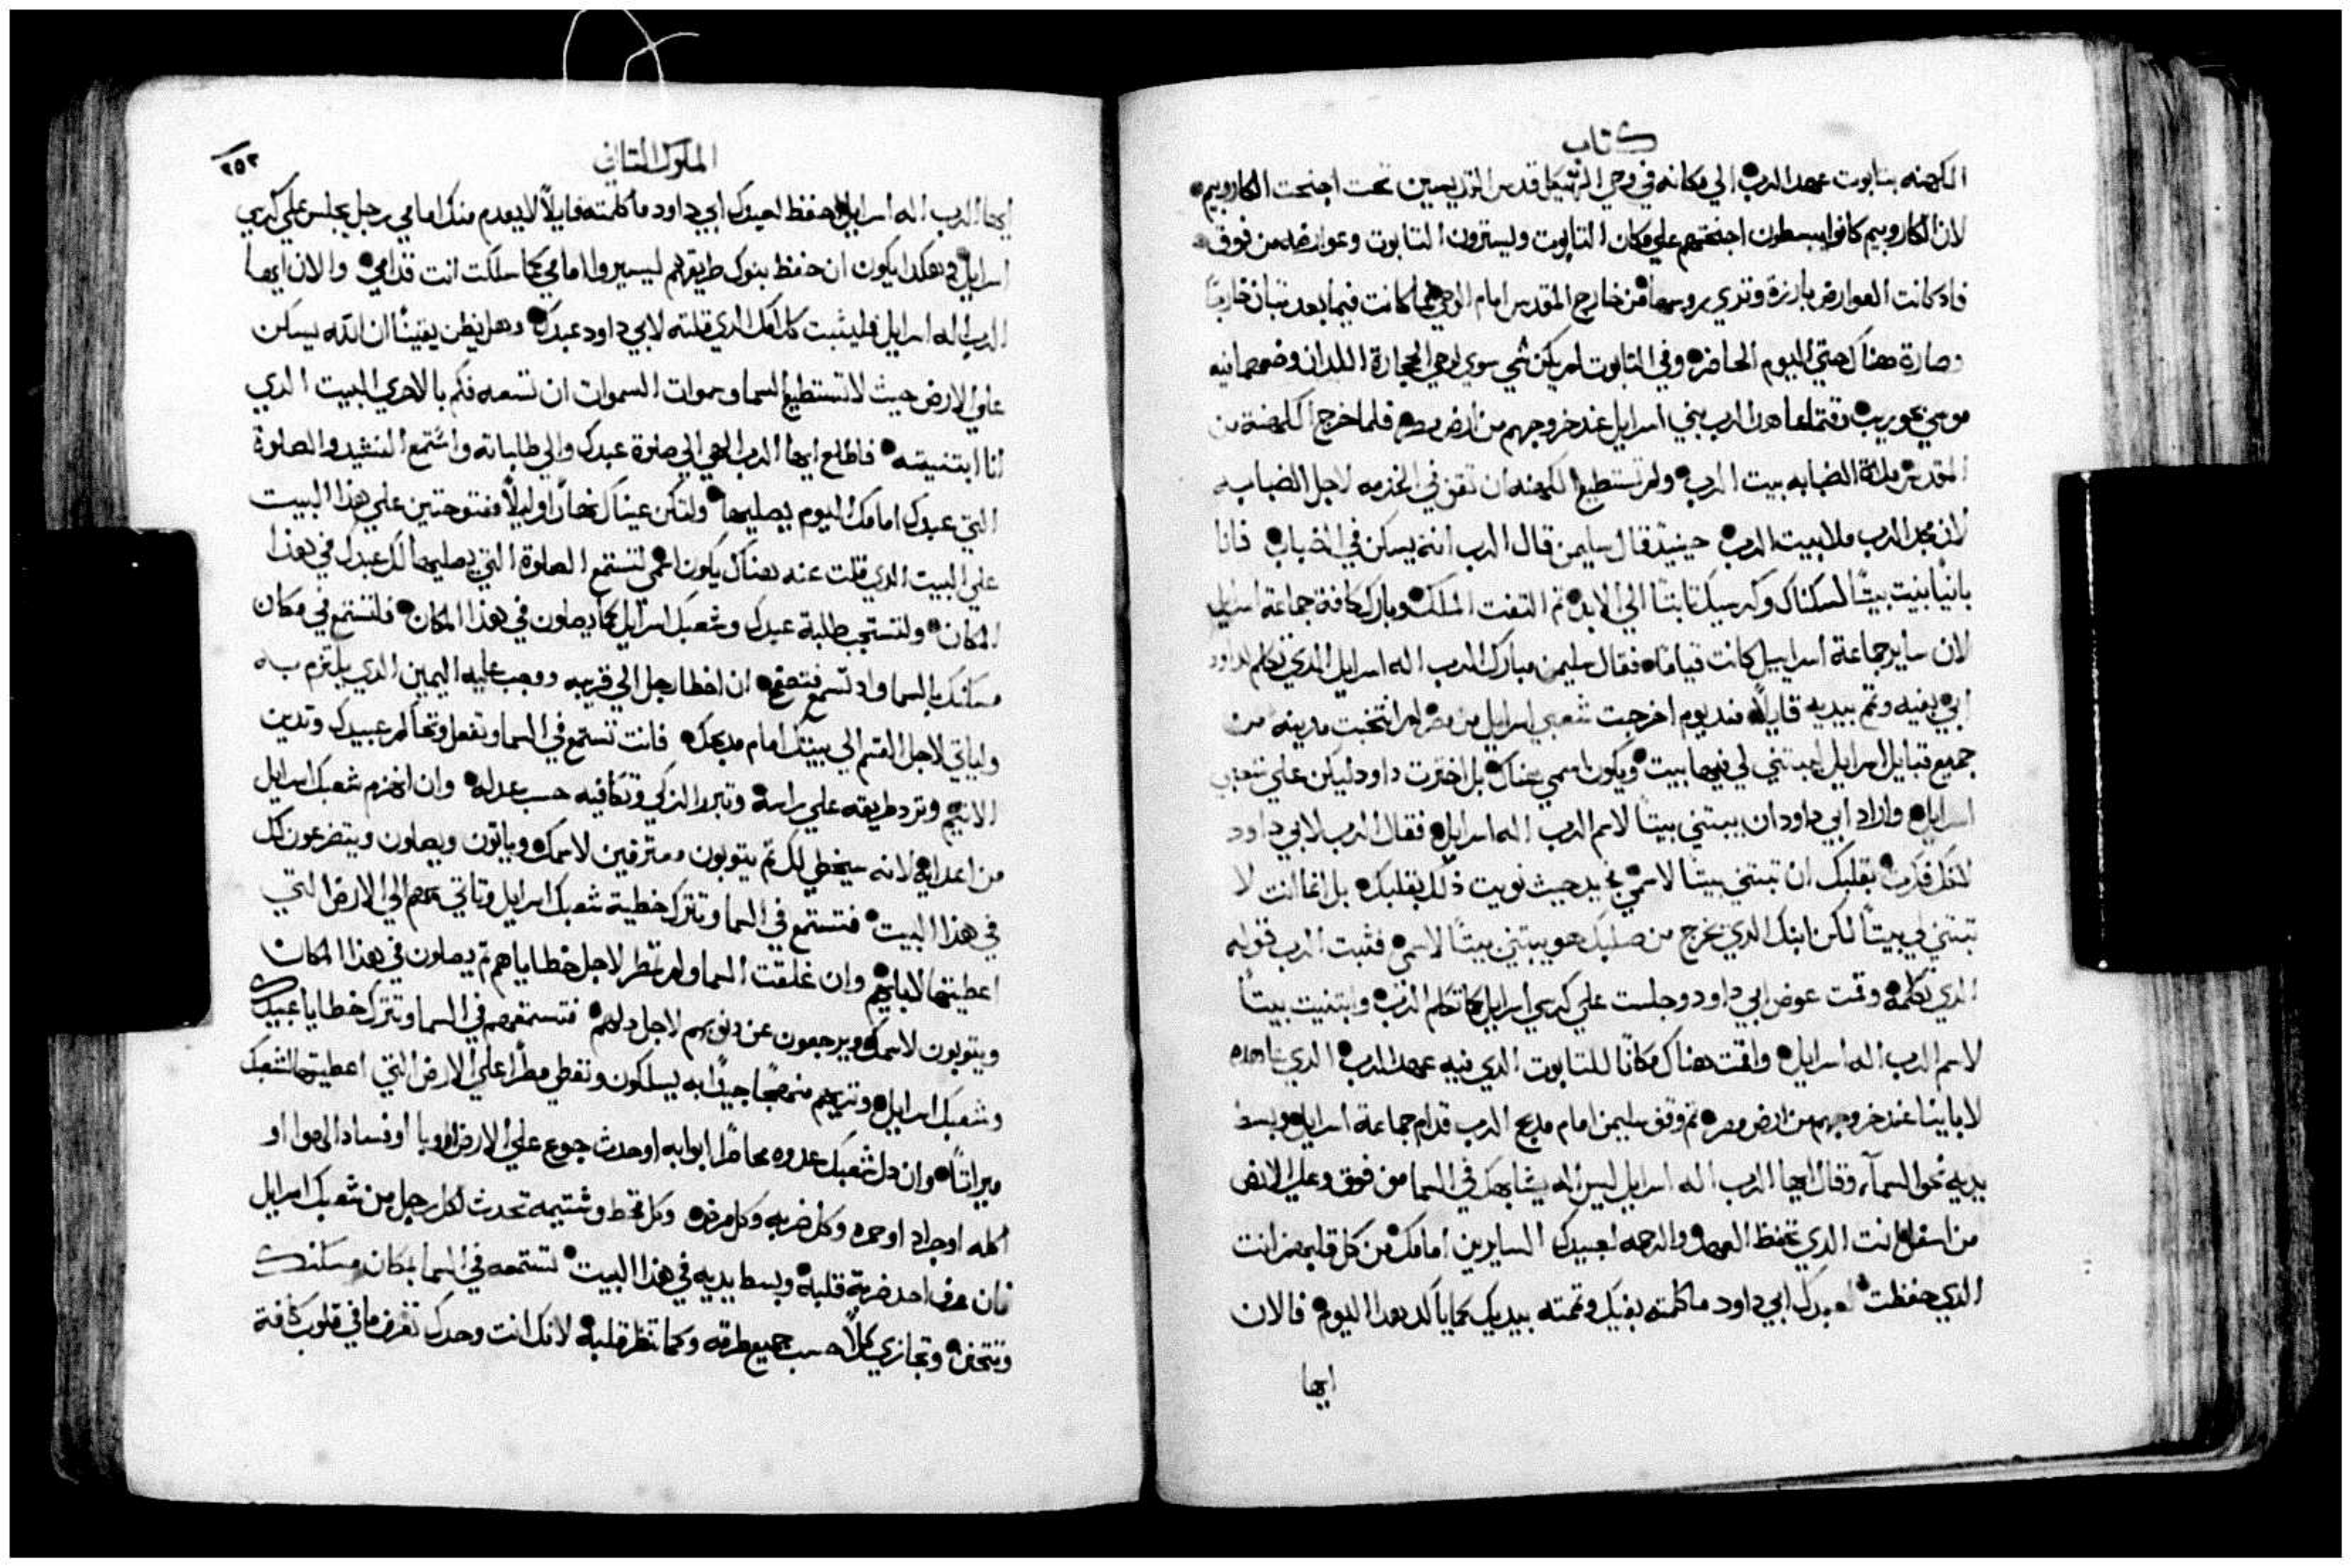 كتاب
الكهنه بتابوت عهد الرب الي مكانه في وحي الهيكل قدس القديسين تحت اجنحت الكاروبيم
لان الكاروبيم كانوا يبسطون اجنحتهم علي مكان التابوت ويسترون التابوت وعوارضه من فوق
فاد كانت العوارض بارزة وتري روسها من خارج المقدس امام الوحي فما كانت فيما بعد تبان خارجًا
وصارة هناك حتي اليوم الحاضر وفي التابوت لم يكن شي سوي لوحي الحجارة اللدان وضعهما فيه
موسي بحوريب وقتما عاهد الرب بني اسرايل عند خروجهم من ارض مصر فلما خرج الكهنة من
المقدس ملاة الضبابه بيت الرب ولم تستطيع الكهنه ان تقف في الخدمه لاجل الضبابه
لان مجد الرب ملا بيت الرب حينيذ قال سليمن قال الرب انه يسكن في الضباب فانا
بانيًا بنيت بيتًا لسكناك وكرسيك ثابتًا الي الابد ثم التفت الملك وبارك كافة جماعة اسرايل
لان ساير جماعة اسراييل كانت قيامًا فقال سليمن مبارك الرب اله اسرايل الدي تكلم لداود
ابي بفيه وتم بيديه قايلاً مند يوم اخرجت شعبي اسرايل من مصر لم انتخبت مدينه من
جميع قبايل اسراييل ليبتني لي فيها بيت ويكون اسمي هناك بل اخترت داود ليكن علي شعبي
اسرايل واراد ابي داود ان يبتني بيتًا لاسم الرب اله اسرايل فقال الرب لابي داود
انك فكرت بقلبك ان تبتني بيتًا لاسمي فجيد حيث نويت ذلك بقلبك بل انما انت لا
تبتني لي بيتًا لكن ابنك الدي يخرج من صلبك هو يبتني بيتًا لاسمي فثبت الرب قوله
الدي تكلمه وقمت عوض ابي داود وجلست علي كرسي اسرايل كما تكلم الرب وابتنيت بيتًا
لاسم الرب اله اسرايل واقمت هناك مكانًا للتابوت الدي فيه عهد الرب الدي عاهده
لابايينا عند خروجهم من ارض مصر ثم وقف سليمن امام مدبح الرب قدام جماعة اسرايل وبسط
يديه نحو السمآء وقال ايها الرب اله اسرايل ليس اله يشابهك في السما من فوق وعلي الارض
من اسفل انت الدي تحفظ العهد والرحمه لعبيدك السايرين امامك من كل قلبهم انت
الدي حفظت لعبدك ابي داود ما كلمته بفيك وتمته بيديك كما ياكد هدا اليوم فالان
ايها
الملوك التاني
٢٥٢
ايها الرب اله اسرايل احفظ لعبدك ابي داود ما كلمته قايلاً لا يعدم منك امامي رجل يجلس علي كرسي
اسرايل هكدا يكون ان حفظ بنوك طريقهم ليسيروا امامي كما سلكت انت قدامي والان ايها
الرب اله اسرايل فليثبت كلامك الدي قلته لابي داود عبدك وهل يظن يقينًا ان الله يسكن
علي الارض حيث لا تستطيع السما وسموات السموات ان تسعه فكم بالاحري البيت الدي
انا ابتنيته فاطلع ايها الرب الهي الي صلوة عبدك والي طلباته واستمع النشيد والصلوة
التي عبدك امامك اليوم يصليها ولتكن عيناك نهارًا وليلاً مفتوحتين علي هذا البيت
علي البيت الدي قلت عنه هناك يكون اسمي لتستمع الصلوة التي يصليها لك عبدك في هذا
المكان ولتستجب طلبة عبدك وشعبك اسرايل كما يصلون في هذا المكان فلتستمع في مكان
مسكنك بالسما واد تسمع فتصفح ان اخطا رجل الي قريبه ووجب عليه اليمين الدي يلتزم به
ولياتي لاجل القسم الي بيتك امام مدبحك فانت تستمع في السما وتفعل وتحاكم عبيدك وتدين
الاثيم وترد طريقه علي راسه وتبرر الزكي وتكافيه حسب عدله وان انهزم شعبك اسرايل
من اعدايه لانه سيخطي لك ثم يتوبون ومعترفين لاسمك وياتون ويصلون ويتضرعون لك
في هذا البيت فتستمع في السما وتترك خطية شعبك اسرايل وتاتي بهم الي الارض التي
اعطيتها لابايهم وان غلقت السما ولم تمطر لاجل خطاياهم ثم يصلون في هذا المكان
ويتوبون لاسمك ويرجعون عن دنوبهم لاجل دلهم فتستمعهم في السما وتترك خطايا عبيدك
وشعبك اسرايل وتريهم منهجًا جيدًا به يسلكون وتعطي مطرًا علي الارض التي اعطيتها لشعبك
ميراثًا وان دل شعبك عدوه محاصرًا ابوابه او حدث جوع علي الارض او وبا او فساد الهوا او
اكله او جراد او حمره وكل ضربه وكل مرض وكل قحط وشتيمه تحدث لكل رجل من شعبك اسرايل
فان عرف احد ضربة قلبه وبسط يديه في هذا البيت تستمعه في السما بمكان مسكنك
وتتحنن وتجازي كلاً حسب جميع طرقه وكما تنظر قلبه لانك انت وحدك تعرف ما في قلوب كافة